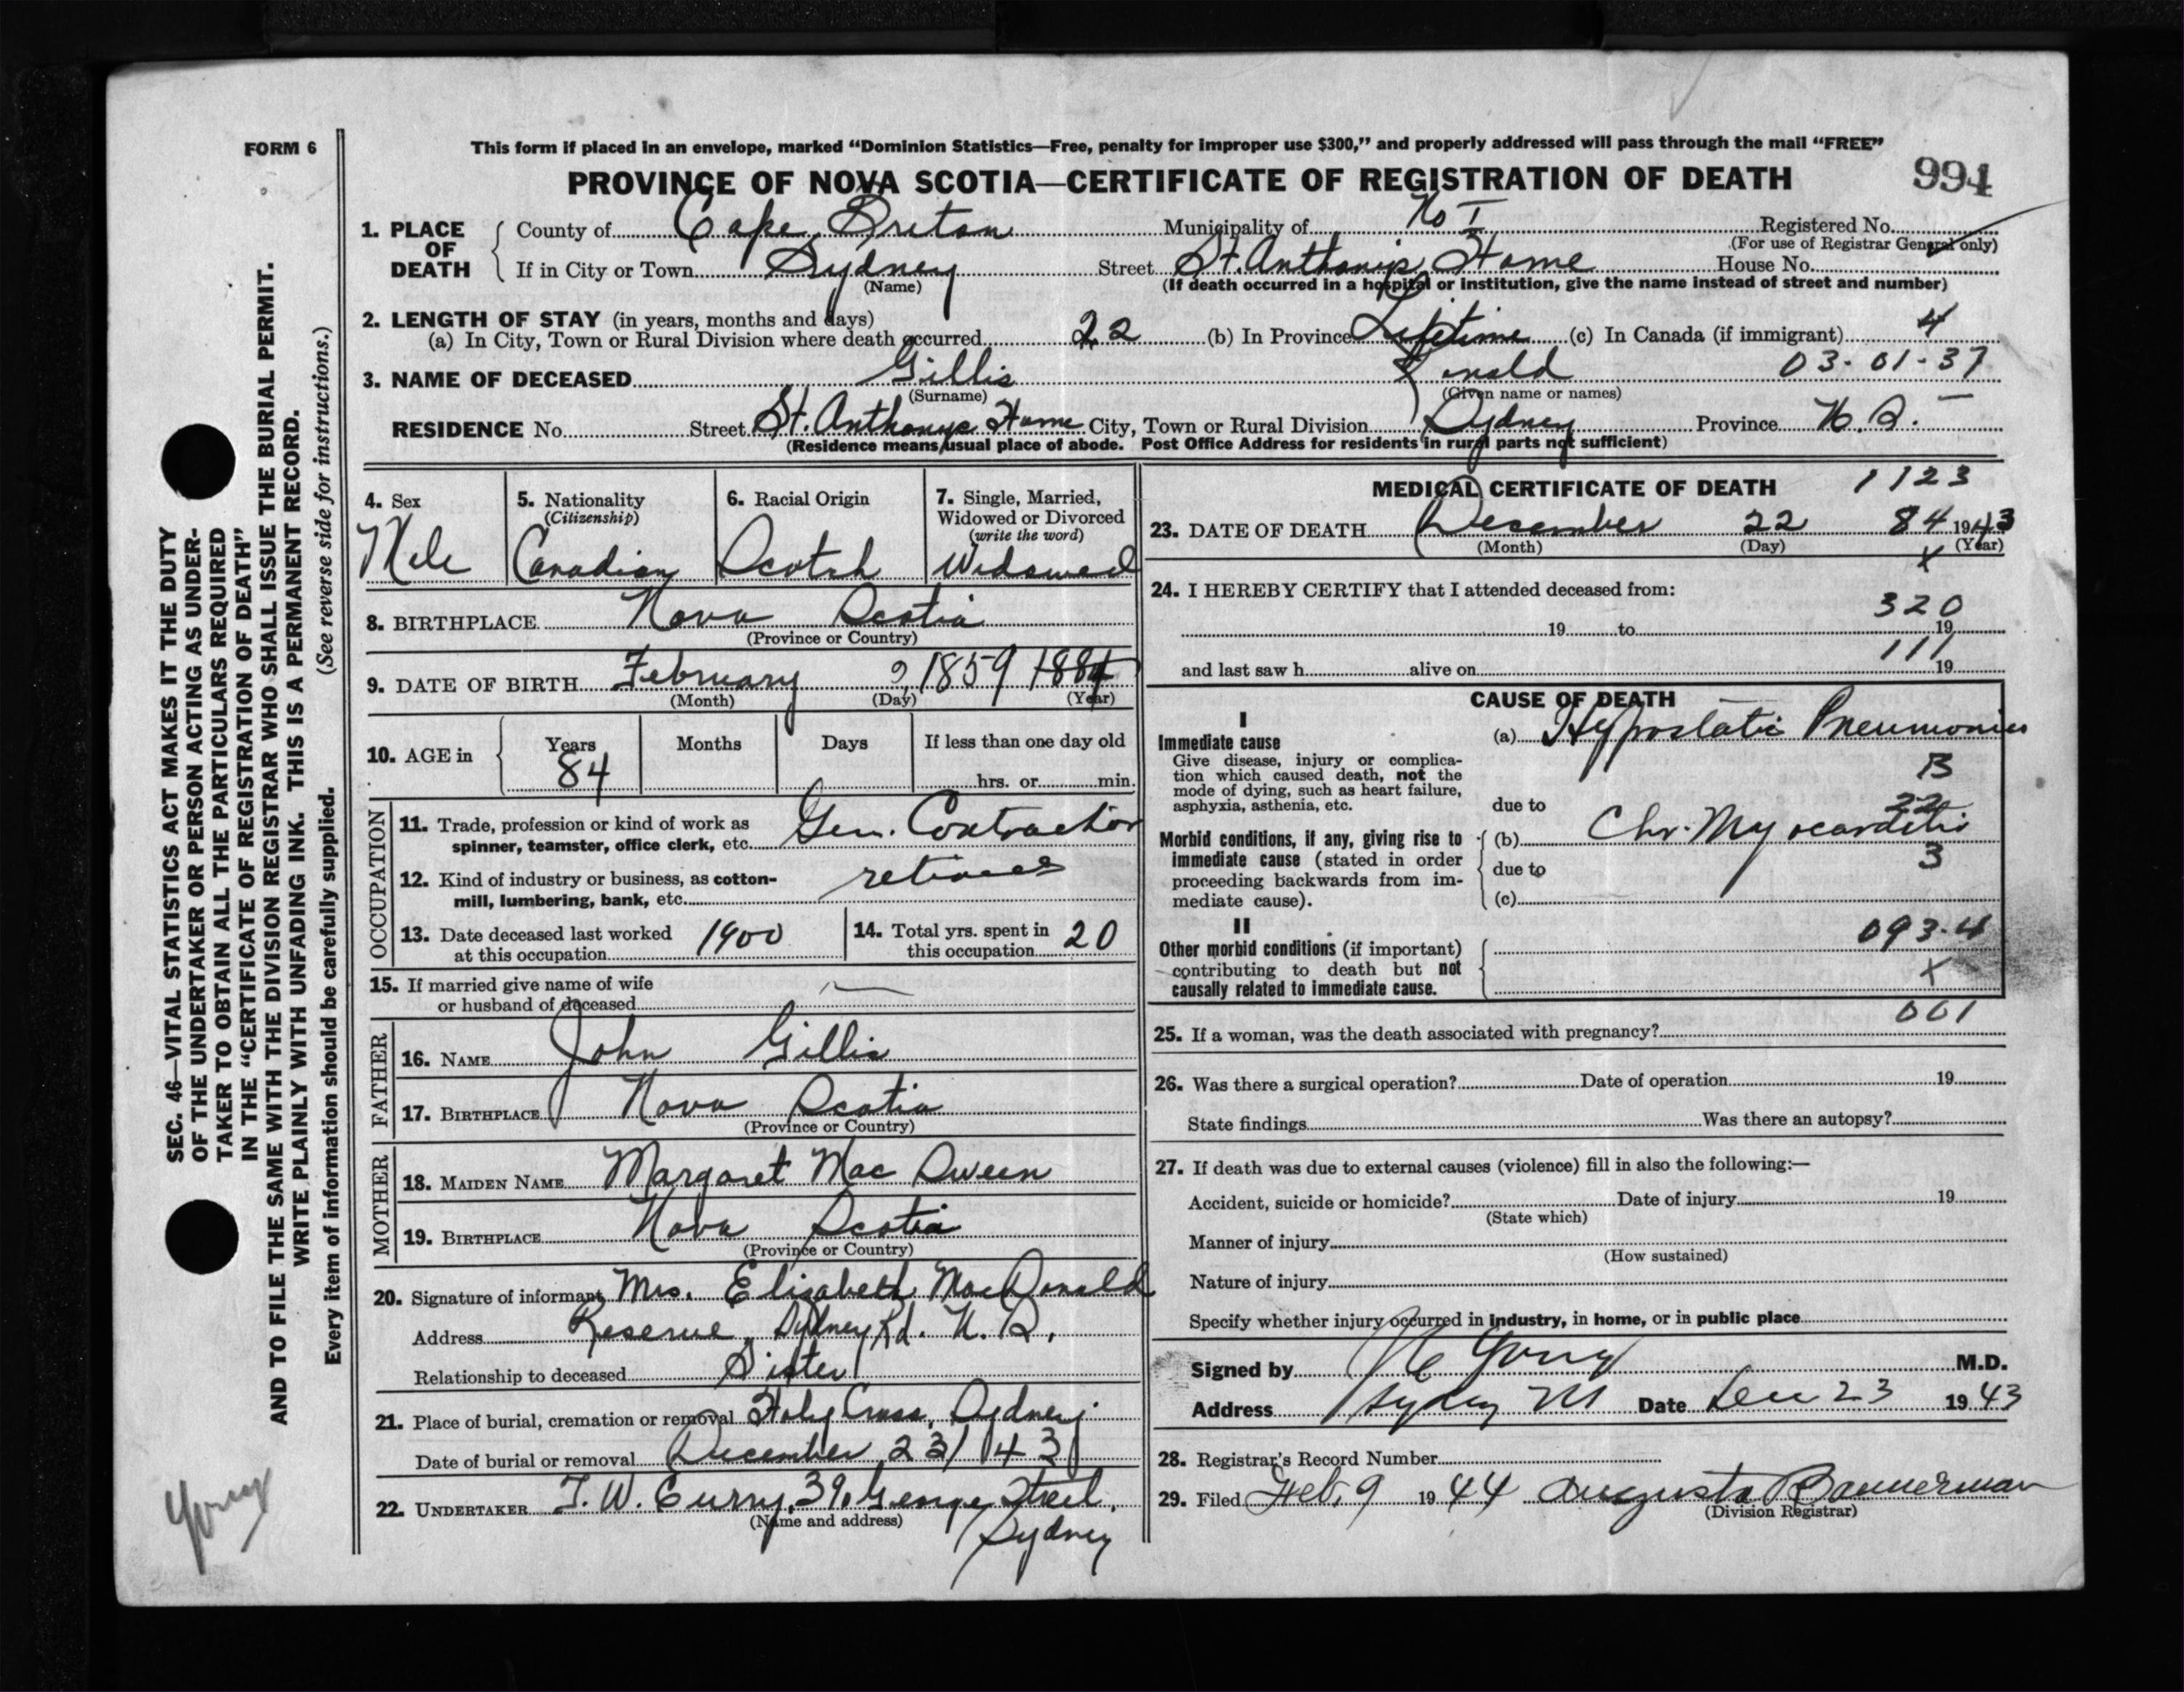 FORM 6
This form if placed in an envelope, marked “Dominion Statistics—Free, penalty for improper use $300,” and properly addressed will pass through the mail “FREE”
PROVINCE OF NOVA SCOTIA—CERTIFICATE OF REGISTRATION OF DEATH 994
1. PLACE OF DEATH
County of Cape Breton Municipality of No I Registered No.
(For use of Registrar General only)
If in City or Town Sydney Street St. Anthonys Home House No.
(Name) (If death occurred in a hospital or institution, give the name instead of street and number)
2. LENGTH OF STAY (in years, months and days)
(a) In City, Town or Rural Division where death occurred 22 (b) In Province Lifetime (c) In Canada (if immigrant) 4
3. NAME OF DECEASED Gillis Ronald 03-01-37
(Surname) (Given name or names)
RESIDENCE No. Street St. Anthonys Home City, Town or Rural Division Sydney Province N.S.
(Residence means usual place of abode. Post Office Address for residents in rural parts not sufficient)
4. Sex
Male
5. Nationality
(Citizenship)
Canadian
6. Racial Origin
Scotch
7. Single, Married,
Widowed or Divorced
(write the word)
Widowed
8. BIRTHPLACE Nova Scotia
(Province or Country)
9. DATE OF BIRTH February 9, 1859 1884
(Month) (Day) (Year)
10. AGE in Years Months Days If less than one day old
84 hrs. or min.
OCCUPATION
11. Trade, profession or kind of work as
spinner, teamster, office clerk, etc. Gen. Contractor
12. Kind of industry or business, as cotton-
mill, lumbering, bank, etc. retired
13. Date deceased last worked
at this occupation 1900
14. Total yrs. spent in
this occupation 20
15. If married give name of wife
or husband of deceased —
FATHER
16. NAME John Gillis
17. BIRTHPLACE Nova Scotia
(Province or Country)
MOTHER
18. MAIDEN NAME Margaret Mac Sween
19. BIRTHPLACE Nova Scotia
(Province or Country)
20. Signature of informant Mrs. Elizabeth MacDonald
Address Reserve, Sydney Rd. N.S.
Relationship to deceased Sister
21. Place of burial, cremation or removal Holy Cross, Sydney
Date of burial or removal December 23/43
22. UNDERTAKER T. W. Curry, 39, George Street,
(Name and address)
Sydney
MEDICAL CERTIFICATE OF DEATH 1123
23. DATE OF DEATH December 22 84 1943
(Month) (Day) (Year)
X
24. I HEREBY CERTIFY that I attended deceased from:
320
19 to 19
111
and last saw h alive on 19
CAUSE OF DEATH
I
Immediate cause
Give disease, injury or complica-
tion which caused death, not the
mode of dying, such as heart failure,
asphyxia, asthenia, etc.
(a) Hypostatic Pneumonia
B
due to
22
Morbid conditions, if any, giving rise to
immediate cause (stated in order
proceeding backwards from im-
mediate cause).
(b) Chr. Myocarditis
3
due to
(c)
II
Other morbid conditions (if important)
contributing to death but not
causally related to immediate cause.
093-4
X
001
25. If a woman, was the death associated with pregnancy?
26. Was there a surgical operation? Date of operation 19
State findings Was there an autopsy?
27. If death was due to external causes (violence) fill in also the following:—
Accident, suicide or homicide? Date of injury 19
(State which)
Manner of injury
(How sustained)
Nature of injury
Specify whether injury occurred in industry, in home, or in public place
Signed by M.D.
Address Sydney Date Dec 23 1943
28. Registrar's Record Number
29. Filed Feb. 9 1944 Augusta Bannerman
(Division Registrar)
SEC. 46—VITAL STATISTICS ACT MAKES IT THE DUTY
OF THE UNDERTAKER OR PERSON ACTING AS UNDER-
TAKER TO OBTAIN ALL THE PARTICULARS REQUIRED
IN THE “CERTIFICATE OF REGISTRATION OF DEATH”
AND TO FILE THE SAME WITH THE DIVISION REGISTRAR WHO SHALL ISSUE THE BURIAL PERMIT.
WRITE PLAINLY WITH UNFADING INK. THIS IS A PERMANENT RECORD.
Every item of information should be carefully supplied. (See reverse side for instructions.)